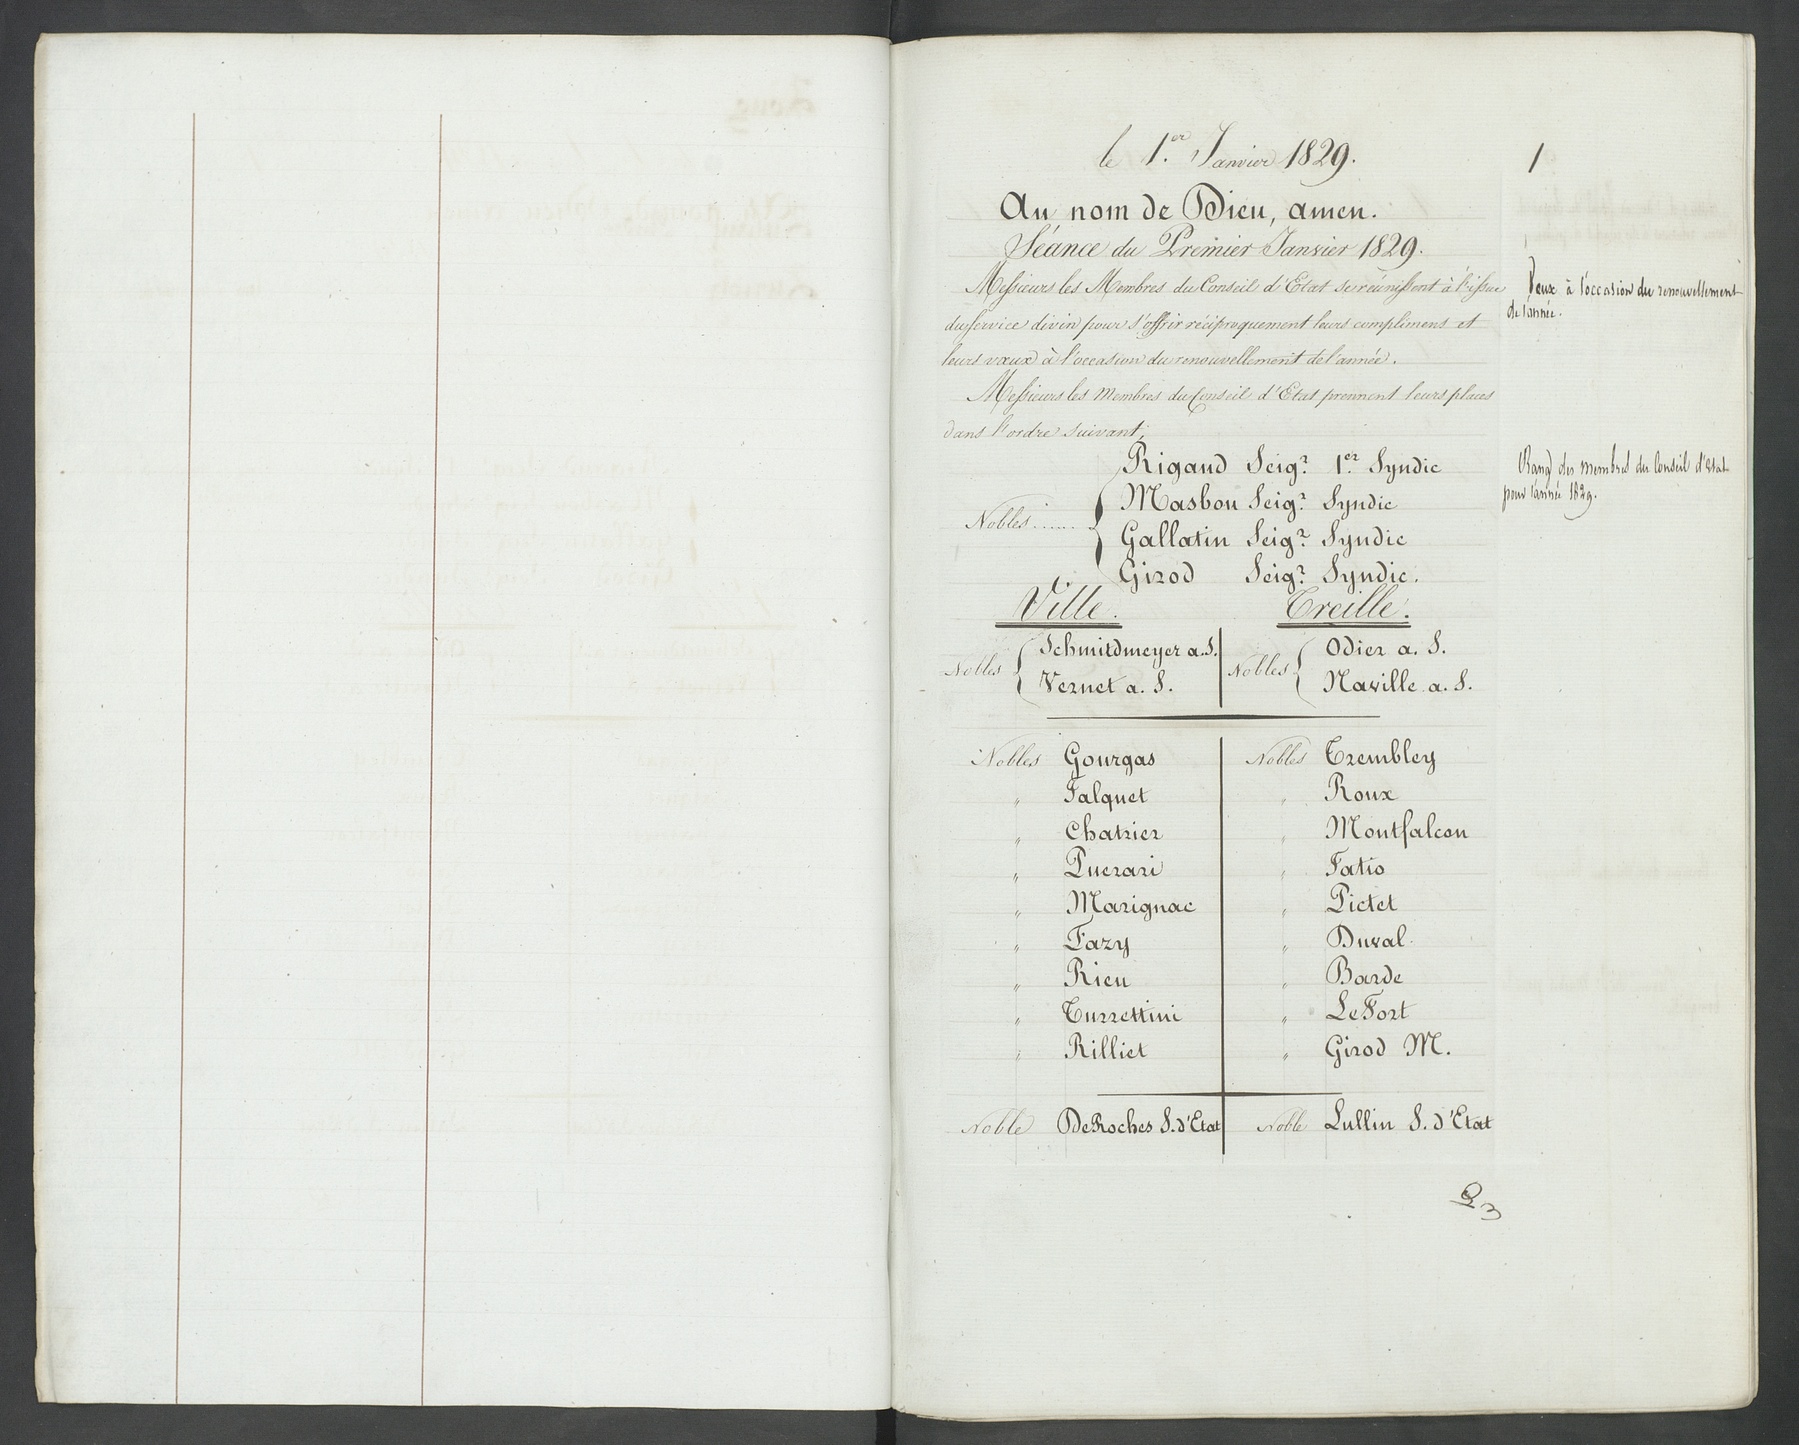 le 1.er Janvier 1829.
1
Au nom de Dieu, amen.
Séance du Premier Janvier 1829.
Messieurs les Membres du Conseil d'Etat se réunissent à l'issue
du service divin pour s'offrir réciproquement leurs complimens et
leurs vœux à l'occasion du renouvellement de l'année.
Vœux à l'occasion du renouvellement
de l'année.
Messieurs les Membres du Conseil d'Etat prennent leurs places
dans l'ordre suivant,
Rang des membres du Conseil d'Etat
pour l'année 1829.
Rigaud Seigr. 1.er Syndic
Masbou Seigr. Syndic
Nobles......
Gallatin Seigr. Syndic
Girod Seigr. Syndic.
Ville. Treille.
Nobles Schmidtmeyer a.S. Nobles Odier a. S.
Vernet a. S. Naville a. S.
Nobles Gourgas Nobles Trembley
" Falquet " Roux
" Chatrier " Montfalcon
" Puerari " Fatio
" Marignac " Pictet
" Fazy " Duval
" Rieu " Barde
" Turrettini " LeFort
" Rilliet " Girod M.
Noble DeRoches S. d'Etat Noble Lullin S. d'Etat